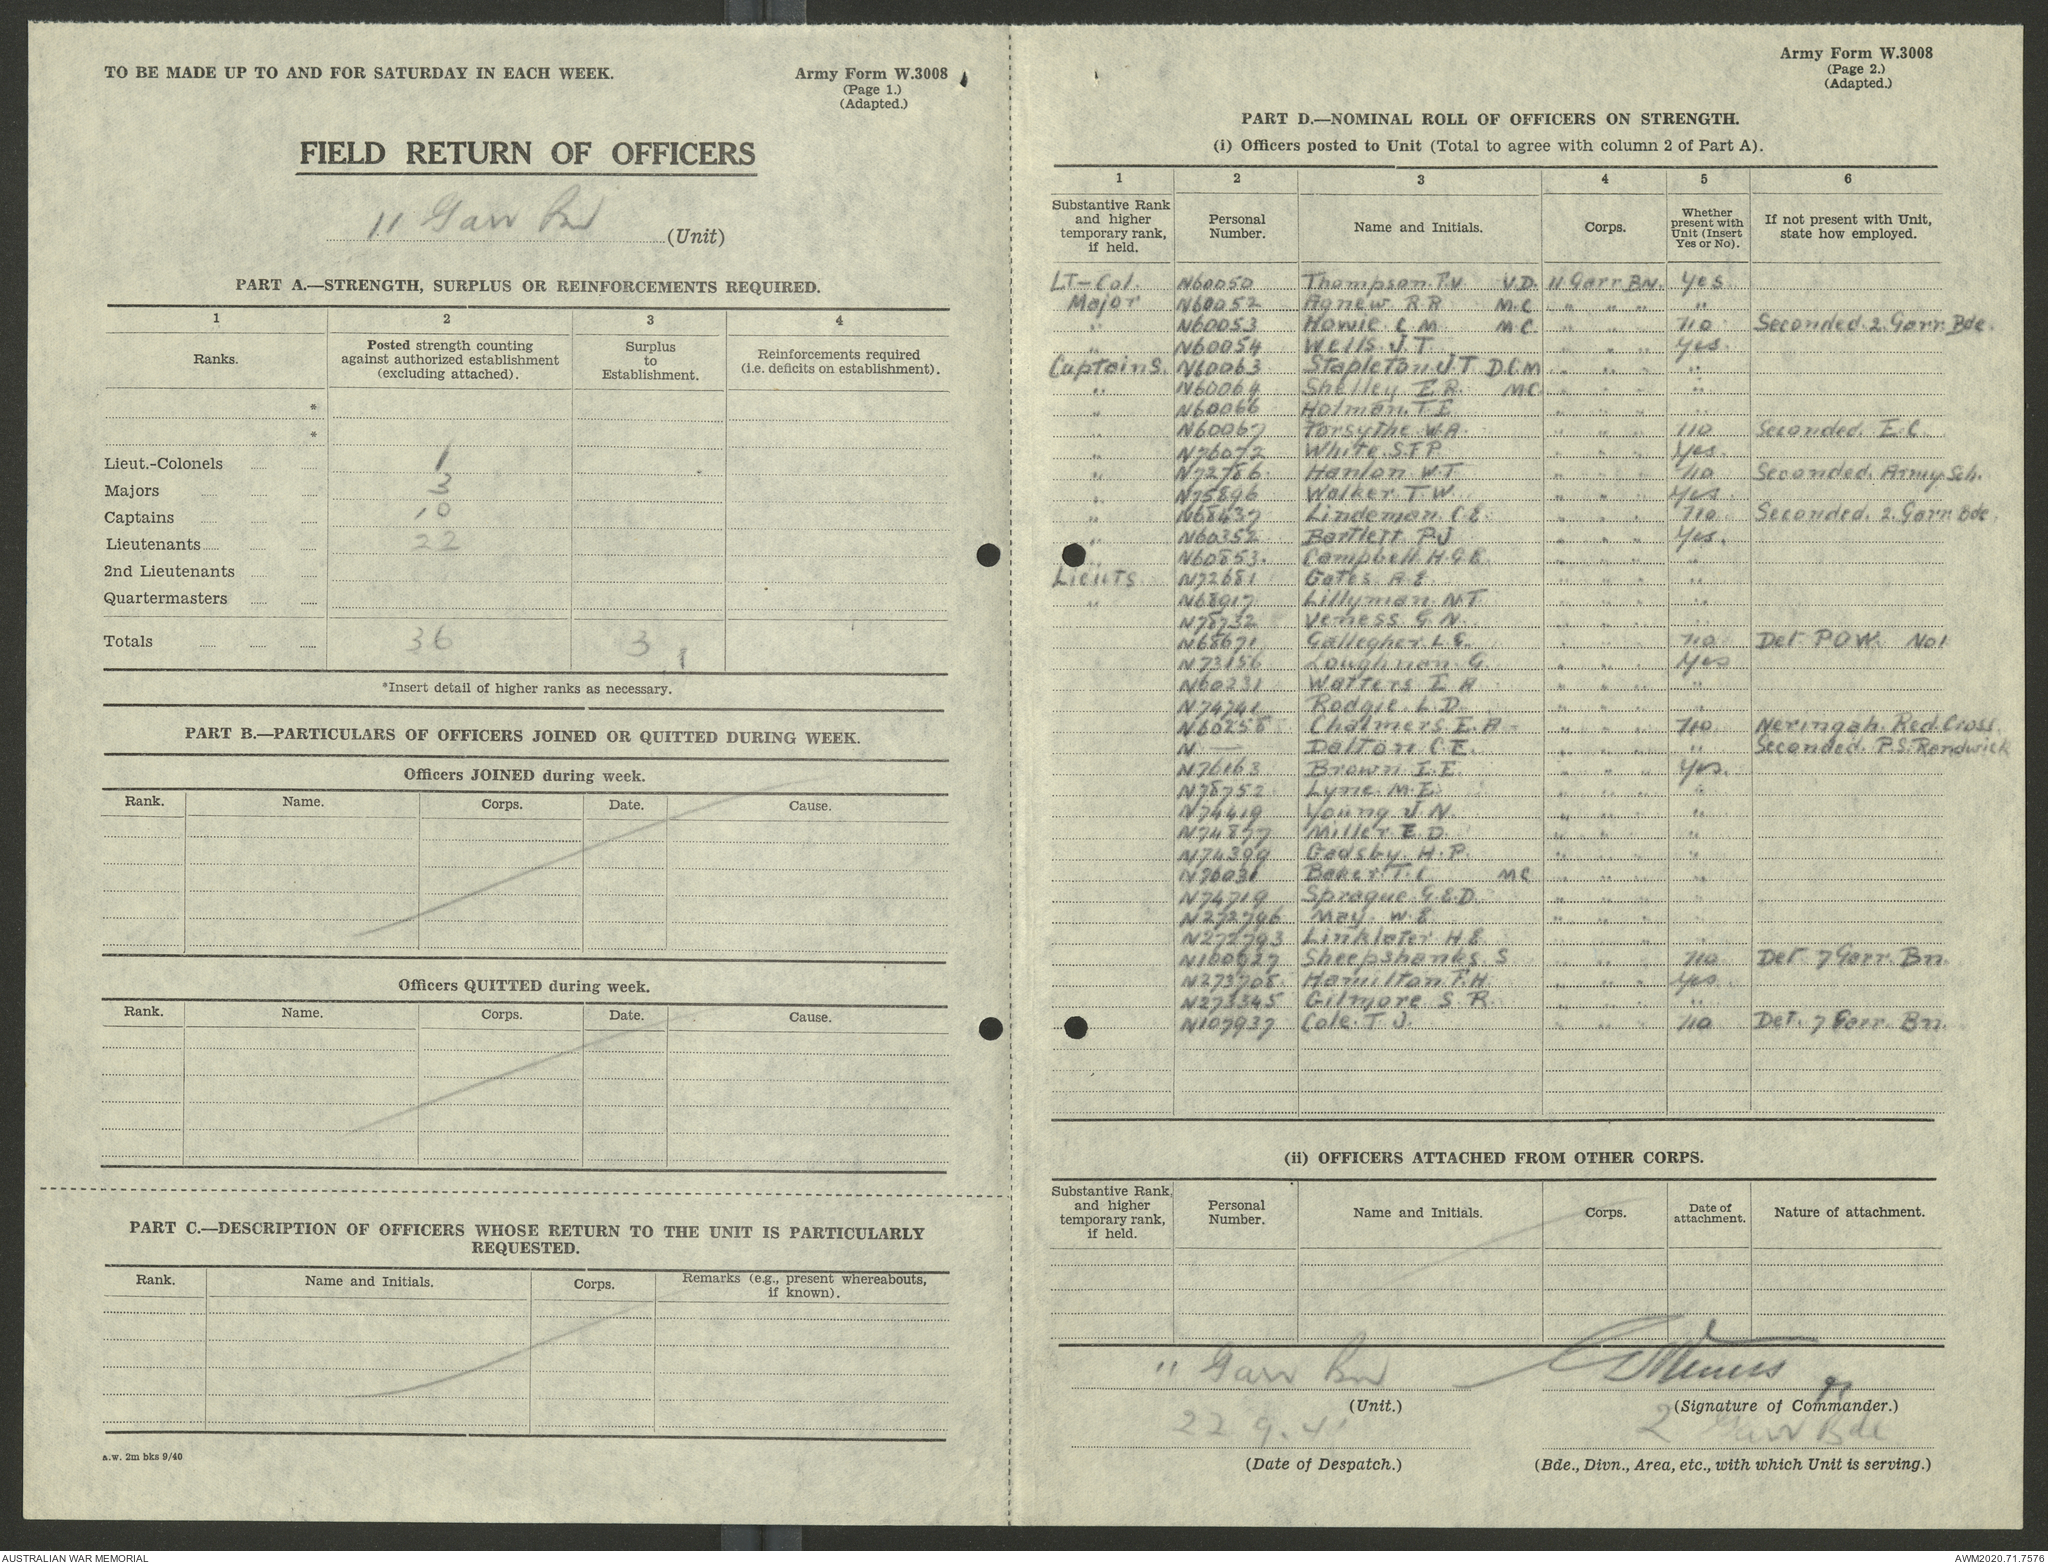 TO BE MADE UP TO AND FOR SATURDAY IN EACH WEEK.
Army Form W.3008
(Page 1.)
(Adapted.)
FIELD RETURN OF OFFICERS
11 Garr Bn (Unit)
PART A.—STRENGTH, SURPLUS OR REINFORCEMENTS REQUIRED.
1 2 3 4
Ranks. Posted strength counting against authorized establishment (excluding attached). Surplus to Establishment. Reinforcements required (i.e. deficits on establishment).
*
*
Lieut.-Colonels 1
Majors 3
Captains 10
Lieutenants 22
2nd Lieutenants
Quartermasters
Totals 36 3
*Insert detail of higher ranks as necessary.
PART B.—PARTICULARS OF OFFICERS JOINED OR QUITTED DURING WEEK.
Officers JOINED during week.
Rank. Name. Corps. Date. Cause.
Officers QUITTED during week.
Rank. Name. Corps. Date. Cause.
PART C.—DESCRIPTION OF OFFICERS WHOSE RETURN TO THE UNIT IS PARTICULARLY
REQUESTED.
Rank. Name and Initials. Corps. Remarks (e.g., present whereabouts, if known).
a.w. 2m bks 9/40
Army Form W.3008
(Page 2.)
(Adapted.)
PART D.—NOMINAL ROLL OF OFFICERS ON STRENGTH.
(i) Officers posted to Unit (Total to agree with column 2 of Part A).
1 2 3 4 5 6
Substantive Rank and higher temporary rank, if held. Personal Number. Name and Initials. Corps. Whether present with Unit (Insert Yes or No). If not present with Unit, state how employed.
LT-Col. N60050 Thompson. P.V V.D. 11 Garr BN. Yes
Major N60052 Agnew R R M.C " " " "
" N60053 Howie C M M.C. " " " no Seconded. 2. Garr. Bde.
" N60054 Wells. J.T. " " " Yes.
Captains. N60063 Stapleton J T D.C.M " " " "
" N60064 Shelley E.R. MC. " " " "
" N60066 Holman. T E " " " "
" N60067 Forsythe W.A. " " " no Seconded. E.C.
" N76072 White. S.F.P. " " " Yes.
" N72786. Hanlon W.T. " " " no Seconded. Army Sch.
" N75896 Walker T.W. " " " Yes.
" N68437 Lindeman. C.E. " " " no Seconded. 2. Garr Bde.
" N60352 Bartlett P.J " " " Yes.
" N60853. Campbell. H.G.E. " " " "
Lieuts. N72681 Gates. A.E. " " " "
" N68917 Lillyman. N.T. " " " "
N78732 Veness G.N. " " " "
N68671 Gallegher L.E. " " " no Det P.O.W. No1
N73156 Loughnan. G. " " " Yes
N60231 Watters E A " " " "
N74741 Rodgie. L.D. " " " "
N60258 Chalmers. E.A " " " no Neringah. Red. Cross.
N — Dalton C.E. " " " " Seconded. P.S. Randwick
N76163 Brown I.E. " " " Yes.
N78752 Lyne M.E. " " " "
N74419 Young J.N. " " " "
N74877 Miller E D. " " " "
N74399 Gadsby. H.P. " " " "
N76031 Baker T.C MC " " " "
N74719 Sprague G.E.D. " " " "
N272796 May. W.E " " " "
N272793 Linklater H E " " " "
N100927 Sheepshanks. S " " " no Det 7 Garr Bn.
N273708. Hamilton F.H. " " " Yes
N273345 Gilmore S R. " " " "
N107937 Cole. T J. " " " no Det. 7 Garr Bn.
(ii) OFFICERS ATTACHED FROM OTHER CORPS.
Substantive Rank, and higher temporary rank, if held. Personal Number. Name and Initials. Corps. Date of attachment. Nature of attachment.
11 Garr Bn
(Unit.) (Signature of Commander.)
22.9.41 2 Garr Bde
(Date of Despatch.) (Bde., Divn., Area, etc., with which Unit is serving.)
AUSTRALIAN WAR MEMORIAL AWM2020.71.7576